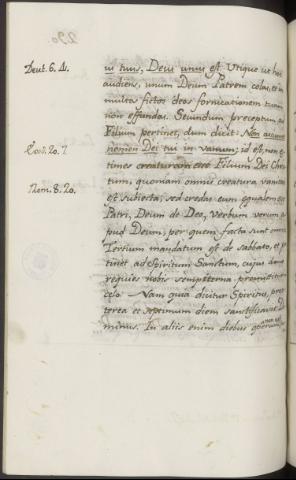 290
Deut. 6. 4.
us tuus, Deus unus est. Utique ut hoc
audiens, unum Deum Patrem colas, et in
multos fictos deos fornicationem tuam
non effundas. Secundum preceptum ad
Filium pertinet, dum dicit: Non assumes
Exo. 20. 7.
nomen Dei tui in vanum; id est, non es-
times creaturam esse Filium Dei Chris-
tum, quoniam omnis creatura vanitati
Rom. 8. 20.
est subiecta; sed credas eum equalem esse
Patri, Deum de Deo, Verbum verum a-
pud Deum, per quem facta sunt omnia.
Tertium mandatum est de sabbato, et per-
tinet ad Spiritum Sanctum, cujus dono
requies nobis sempiterna promittitur in
celo. Nam quia dicitur Spiritus, prop-
terea et septimum diem sanctificavit Do-
minus. In aliis enim diebus